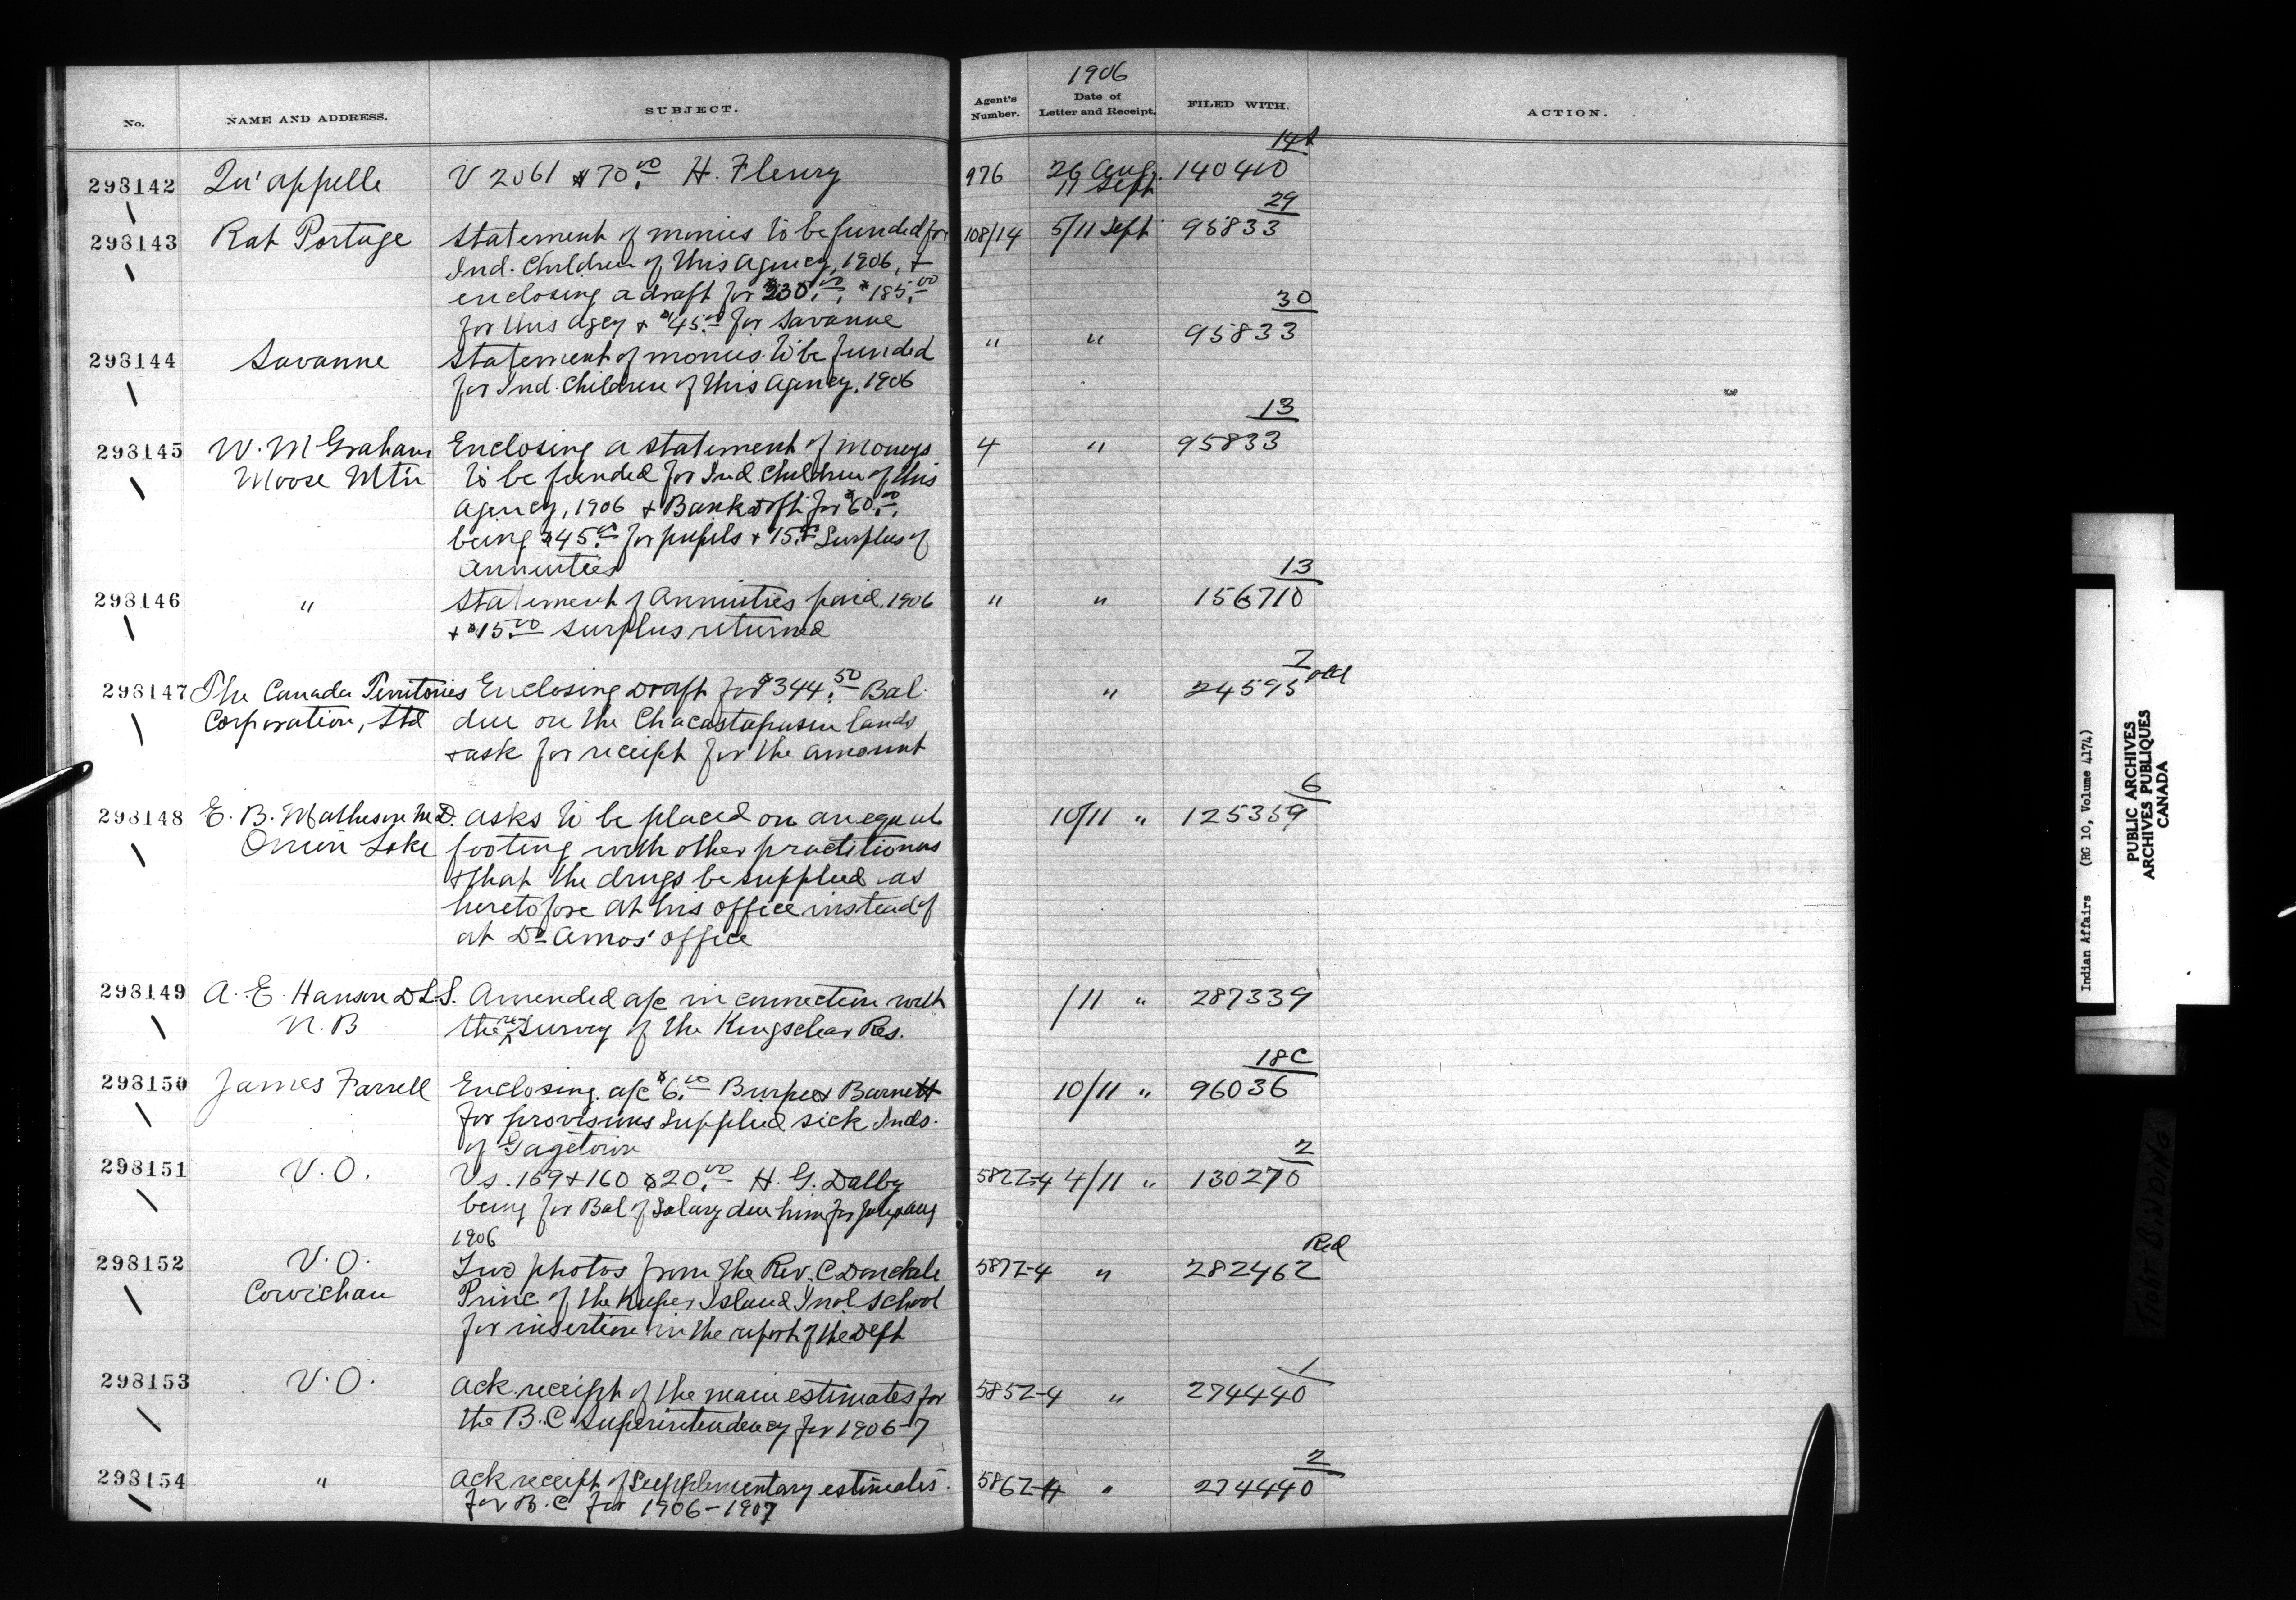 1906
No. NAME AND ADDRESS. SUBJECT. Agent's Number. Date of Letter and Receipt. FILED WITH. ACTION.
14A
298142 Qu'appelle V 2061 $70.00 H. Fleury 976 26 Aug. 140410
11 Sept
29
298143 Rat Portage Statement of monies to be funded for 108/14 5/11 Sept 95833
Ind. Children of this Agency, 1906, +
enclosing a draft for $230.00, $185.00
for this Agcy + $45.00 for Savanne
30
298144 Savanne Statement of monies to be funded " " 95833
for Ind. Children of this Agency, 1906
13
298145 W. M Graham Enclosing a statement of moneys 4 " 95833
Moose Mtn to be funded for Ind. Children of this
Agency, 1906 + Bank Dft for $60.00,
being $45.00 for pupils + 15.00 Surplus of
Annuities
13
298146 " Statement of Annuities paid, 1906 " " 156710
+ $15.00 surplus returned
7
298147 The Canada Territories Enclosing Draft for $344.50 Bal. " 24595 old
Corporation, Ltd due on the Chacastapasin lands
+ ask for receipt for the amount
6
298148 E. B. Matheson M.D. asks to be placed on an equal 10/11 " 125359
Onion Lake footing with other practitioners
+ that the drugs be supplied as
heretofore at his office instead of
at Dr Amos' office
298149 A. E. Hanson D.L.S. Amended a/c in connection with /11 " 287339
N. B the re survey of the Kingsclear Res.
18C
298150 James Farrell Enclosing a/c $6.00 Burpee + Barnett 10/11 " 96036
for provisions supplied sick Inds.
of Gagetown
2
298151 V. O. Vs. 159 + 160 $20.00 H. G. Dalby 5822-4 4/11 " 130270
being for Bal of Salary due him for July + Aug
1906
Red
298152 V. O. Two photos from the Rev. C. Donckele 5872-4 " 282462
Cowichan Princ. of the Kuper Island Indl School
for insertion in the report of the Dept
1
298153 V. O. Ack. receipt of the main estimates for 5852-4 " 274440
the B. C. Superintendency for 1906-7
2
298154 " Ack receipt of Supplementary estimates 5862-4 " 274440
for B. C for 1906-1907
Indian Affairs (RG 10, Volume 4174)
PUBLIC ARCHIVES
ARCHIVES PUBLIQUES
CANADA